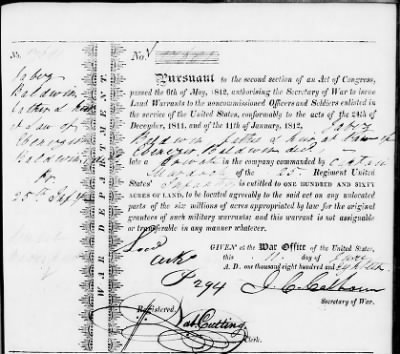 No.
Pursuant to the second section of an Act of Congress,
passed the 6th of May, 1812, authorising the Secretary of War to issue
Land Warrants to the noncommissioned Officers and Soldiers enlisted in
the service of the United States, conformably to the acts of the 24th of
December, 1811, and of the 11th of January, 1812,
Baldwin father & heir at law of
Baldwin dec'd
late a Private in the company commanded by Captain
Murdock of the 25 Regiment United
States' Infantry is entitled to ONE HUNDRED AND SIXTY
ACRES OF LAND, to be located agreeably to the said act on any unlocated
parts of the six millions of acres appropriated by law for the original
grantees of such military warrants; and this warrant is not assignable
or transferable in any manner whatever.
GIVEN at the War Office of the United States,
this 11 day of June
A. D. one thousand eight hundred and eighteen
J. C. Calhoun
Secretary of War.
P 294
Registered,
Nat Cutting
Clerk.
WAR DEPARTMENT.
Baldwin
father & heir
at law of
Baldwin
25th Inf